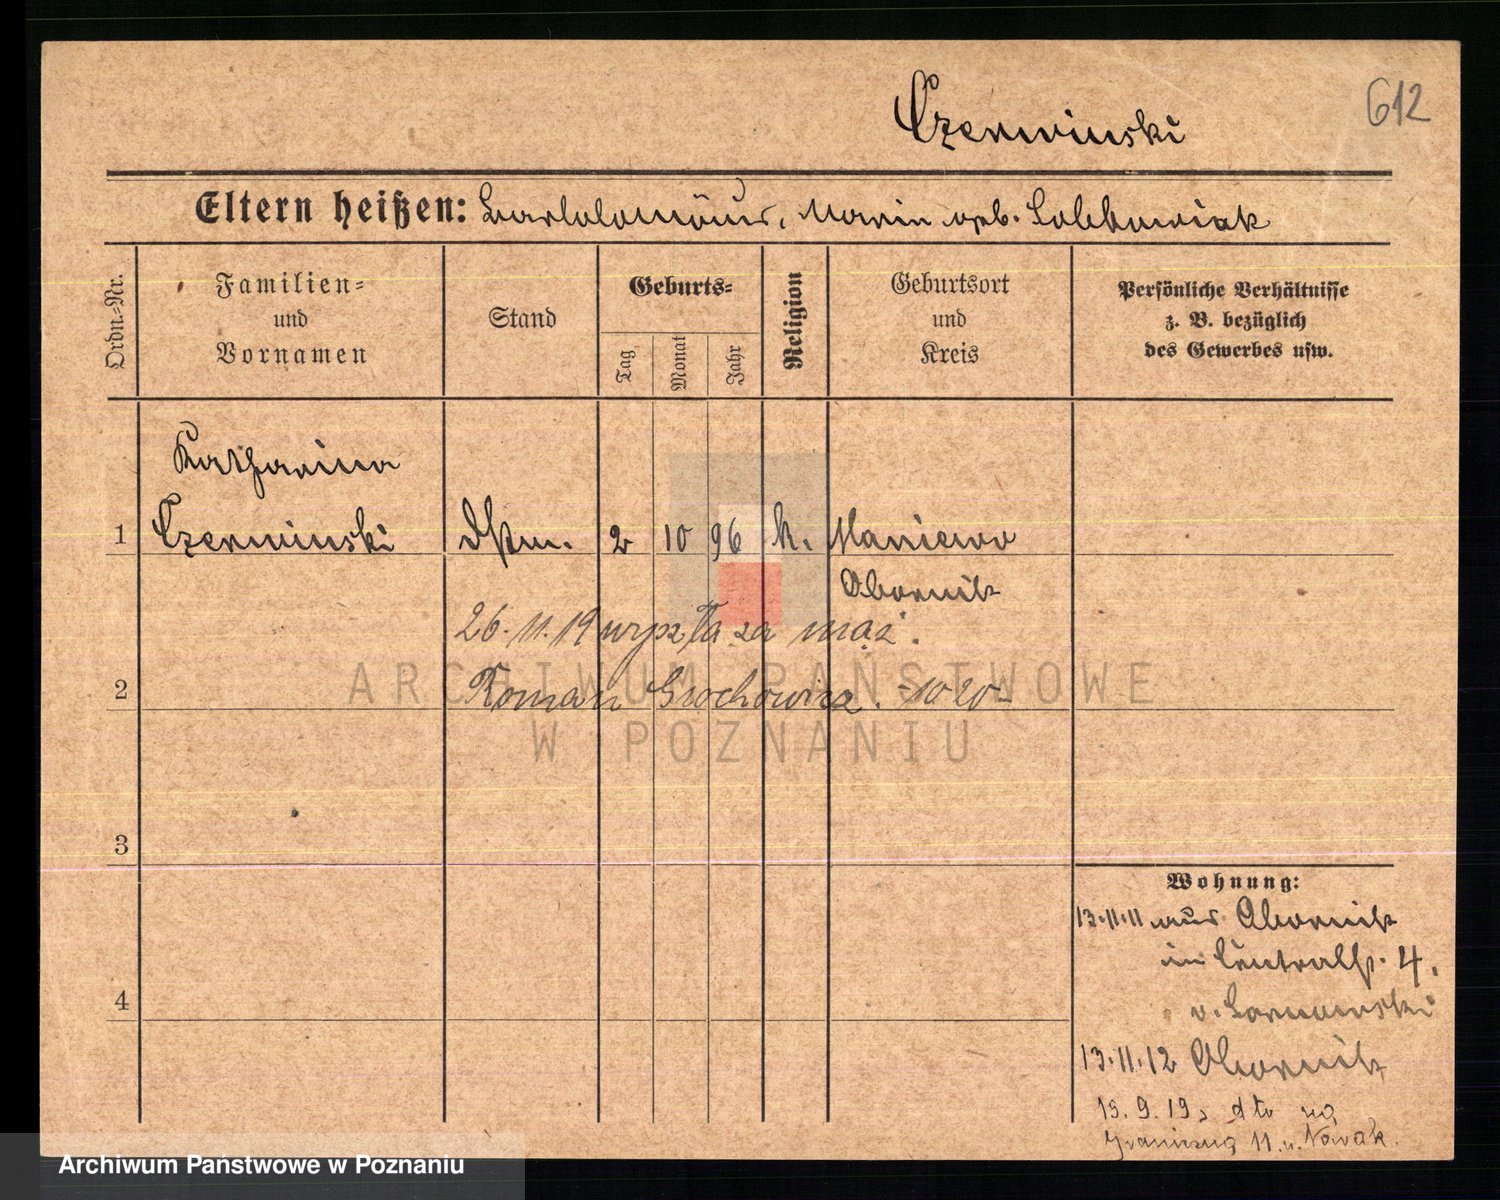 612
Czerwinski
Eltern heißen: Bartolomäus, Maria geb. Lobkowiak
Ordn.-Nr.
Familien-
und
Vornamen
Stand
Geburts-
Tag
Monat
Jahr
Religion
Geburtsort
und
Kreis
Persönliche Verhältnisse
z. B. bezüglich
des Gewerbes usw.
Katharina
1 Czerwinski Dstm. 2 10 96 k. Maniewo
Obornik
26. 11. 19 wyszła za mąż.
2 Roman Grochowicz. -10 20-
ARCHIWUM PAŃSTWOWE
W POZNANIU
3
Wohnung:
13.11.11 aus Obornik
in Centralst. 4.
4
13.11.12 Obornik
19. 9. 19 z dto na
Graniczną 11 u. Nowak.
Archiwum Państwowe w Poznaniu